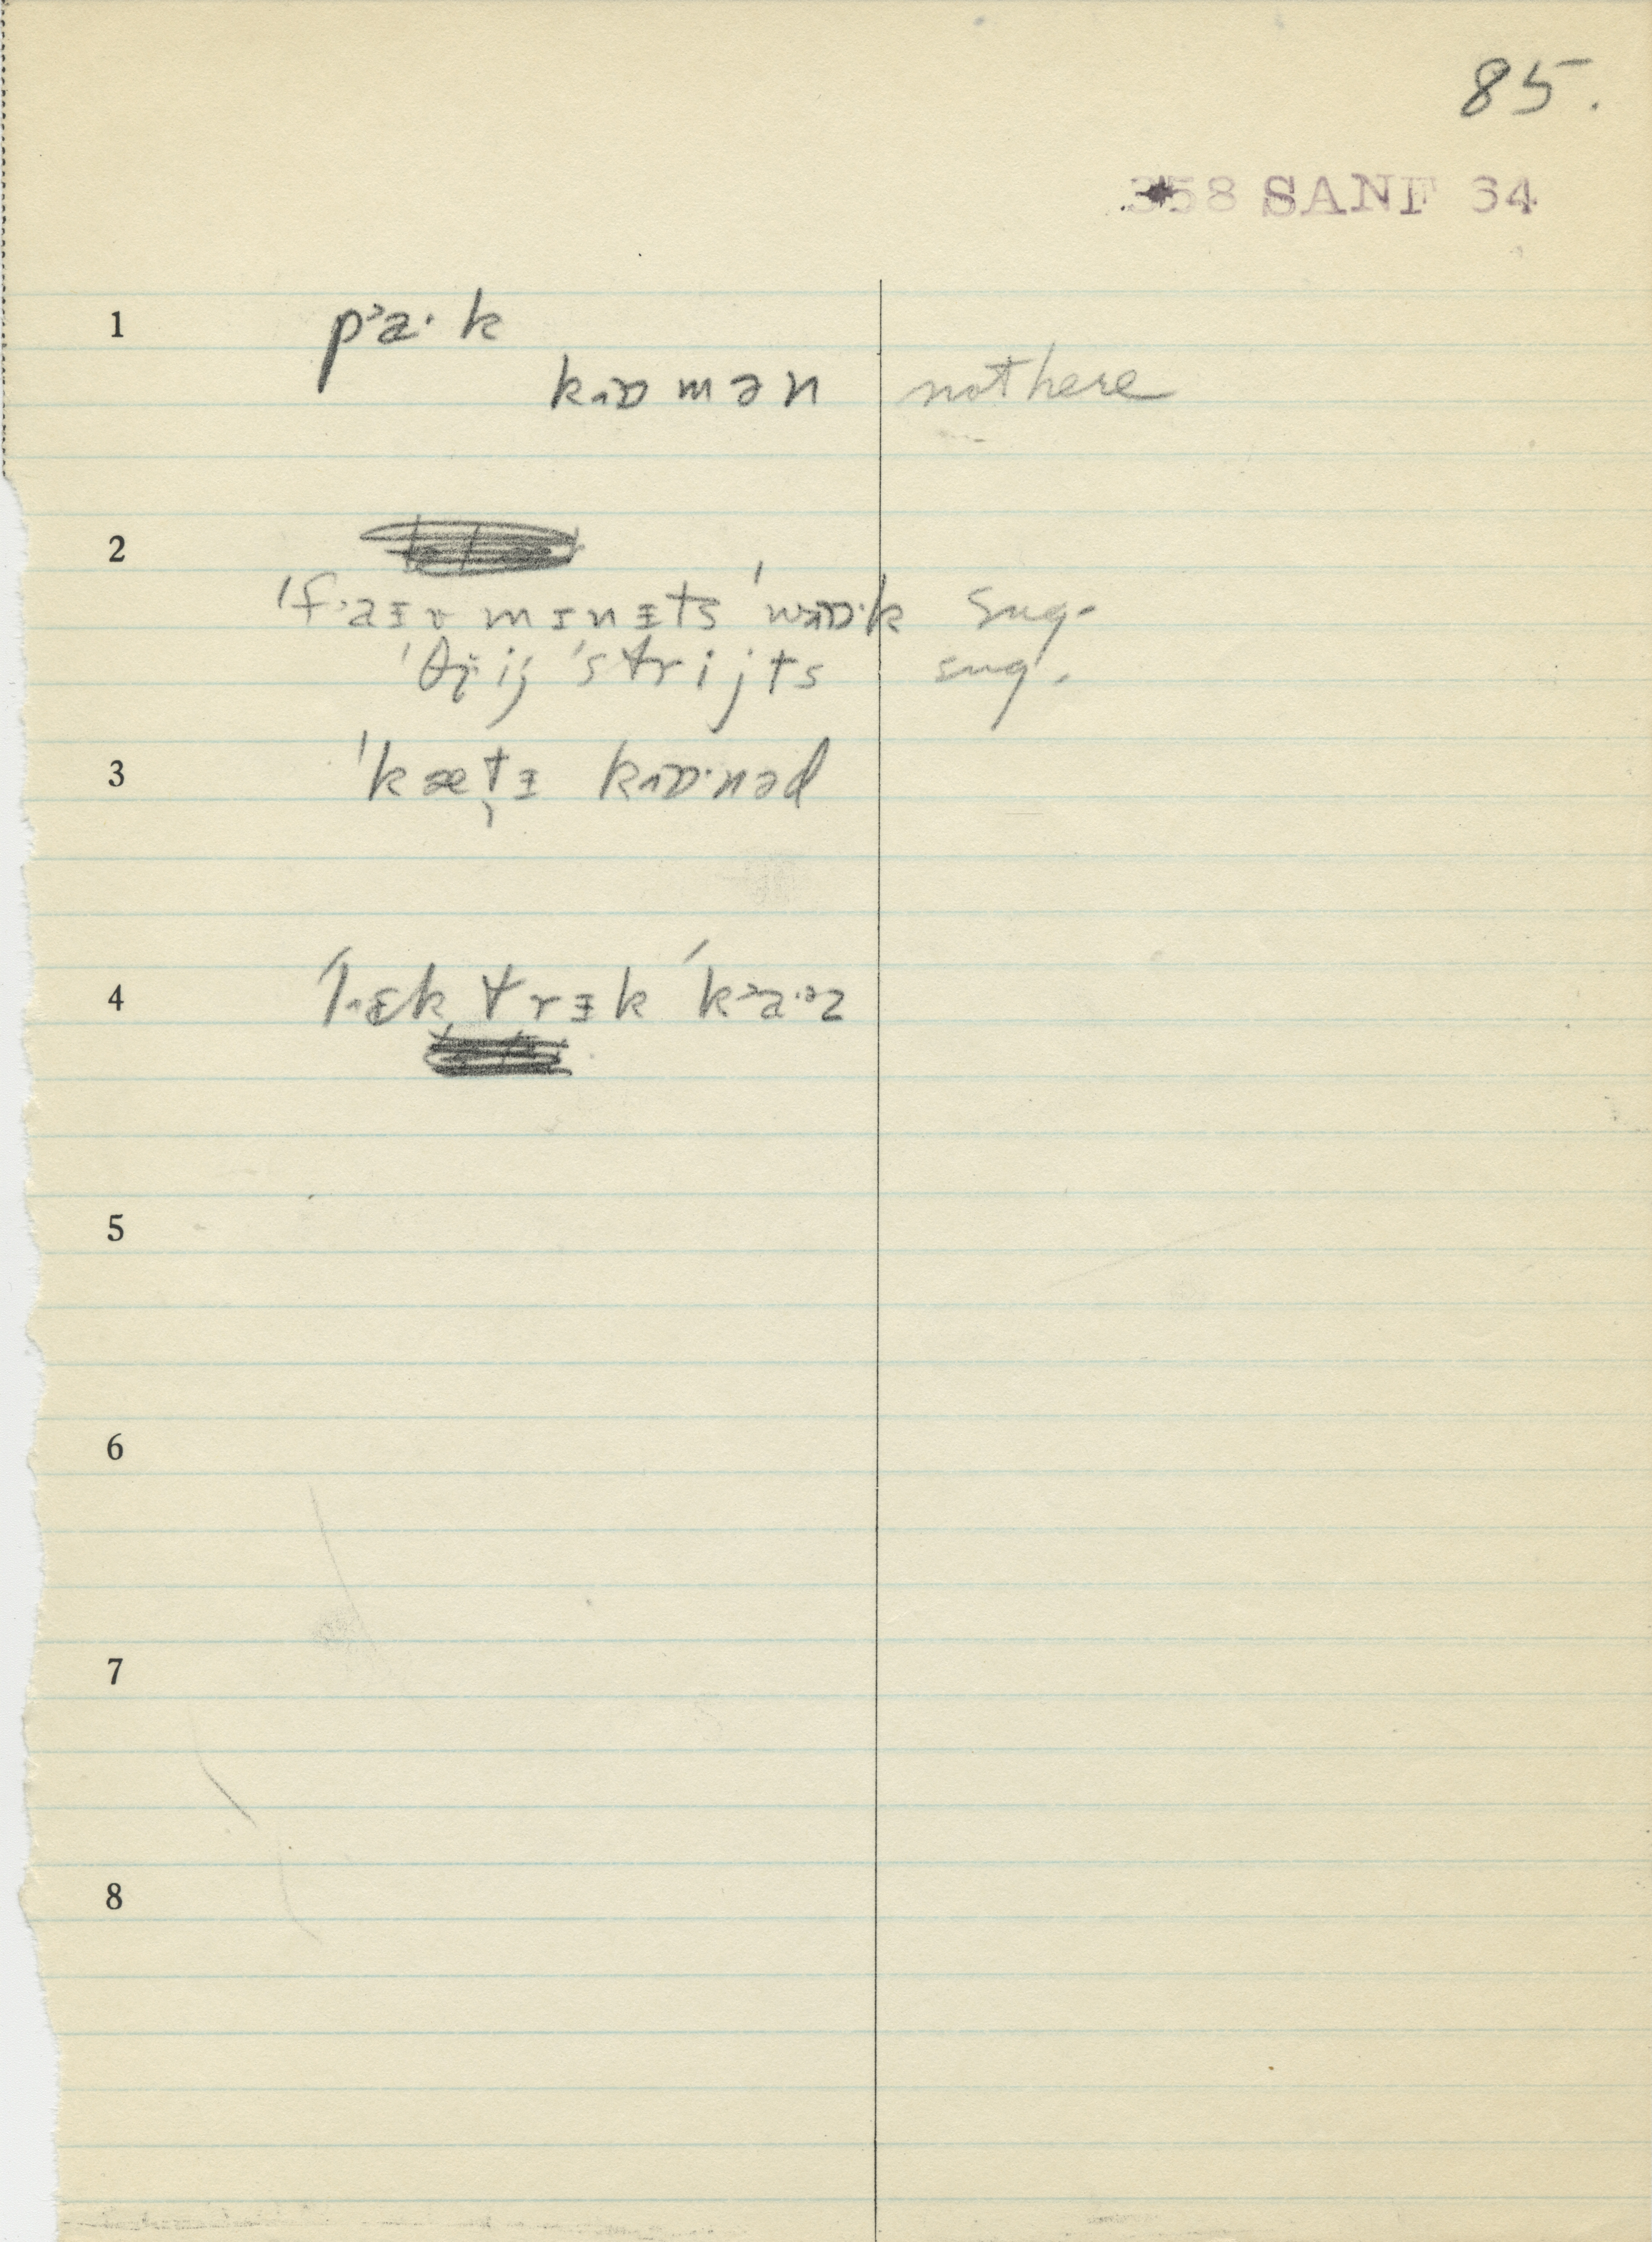 85.
358 SANF 34
1 pᵓa· k
kɒmən not here
2
ˈf·aɪɤ mɪnɪts ˈwɒ·k sug.
ˈθr̥ij ˈstrijts sug.
3 ˈkæt̬ɪ kɒ·nəd
4 ˈlɛktrɪk ˈkᵓa·ᵊz
5
6
7
8